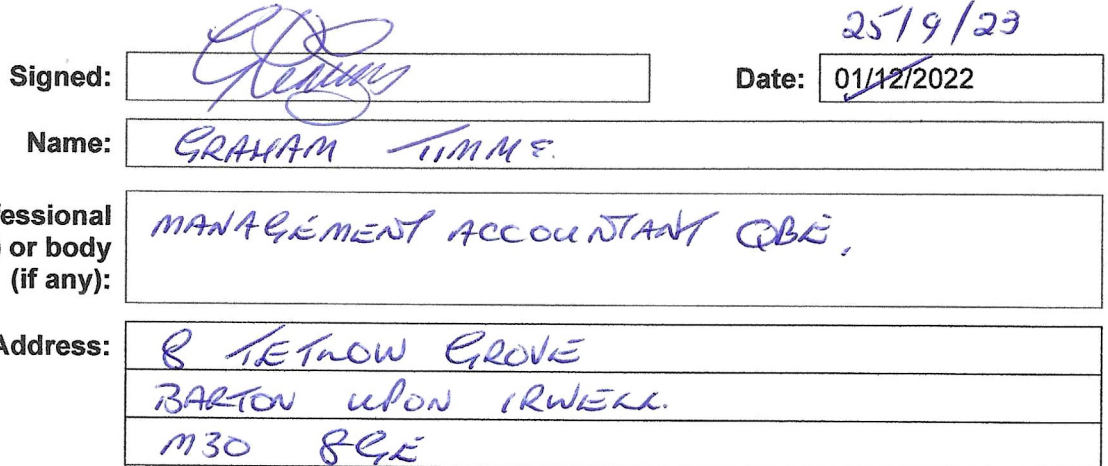 25/9/23
Signed:
Date: 01/12/2022
Name: GRAHAM TIMMS
fessional
or body
(if any): MANAGEMENT ACCOUNTANT QBE.
Address: 8 TETLOW GROVE
BARTON UPON IRWELL.
M30 8GE